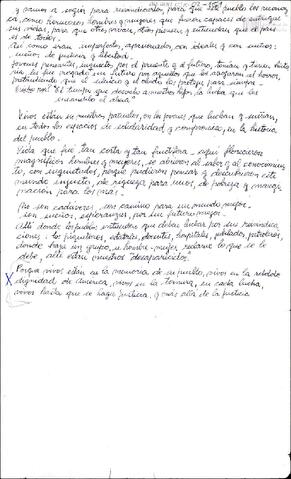 y vamos a seguir para reivindicarlos, para que este pueblo los reconozca
como hermosos hombres y mujeres que fueron capaces de entregar
sus vidas, para que otros vivan, otros piensen y entiendan que el país
es de todos.
Así, como eran, imperfectos, apasionados, con ideales y con sueños:
sueños de justicia y libertad.
Jóvenes pensantes, inquietos por el presente y el futuro, tenían y tienen, hasta
el silencio y el olvido los proteja para siempre.
El tiempo que devoró a nuestros hijos, la lucha que les
Vivos están en nuestros pañuelos, en los jóvenes que luchan y sueñan,
en todos los espacios de solidaridad y compromiso, en la historia
del pueblo.
Vida que fue tan corta y tan fructífera - aquí florecieron
magníficos hombres y mujeres, se abrieron al saber y al conocimien
to, con inquietudes, porque pudieron pensar y descubrieron este
mundo injusto, de riqueza para unos, de pobreza y margi
nación para los más.
No son cadáveres, son camino para un mundo mejor.
son sueños, esperanzas, por un futuro mejor.
Allí donde los pueblos entienden que deben luchar por sus reivindica
ciones: los piqueteros, estatales, docentes, hospitales, jubilados, petroleros,
donde haya un grupo, un hombre, mujer, reclame lo que se le
debe, allí están nuestros "desaparecidos".
X Porque vivos están en la memoria de su pueblo, vivos en la rebelde
dignidad de América, vivos en la ternura, en cada lucha,
vivos hasta que se haga justicia, y más allá de la justicia